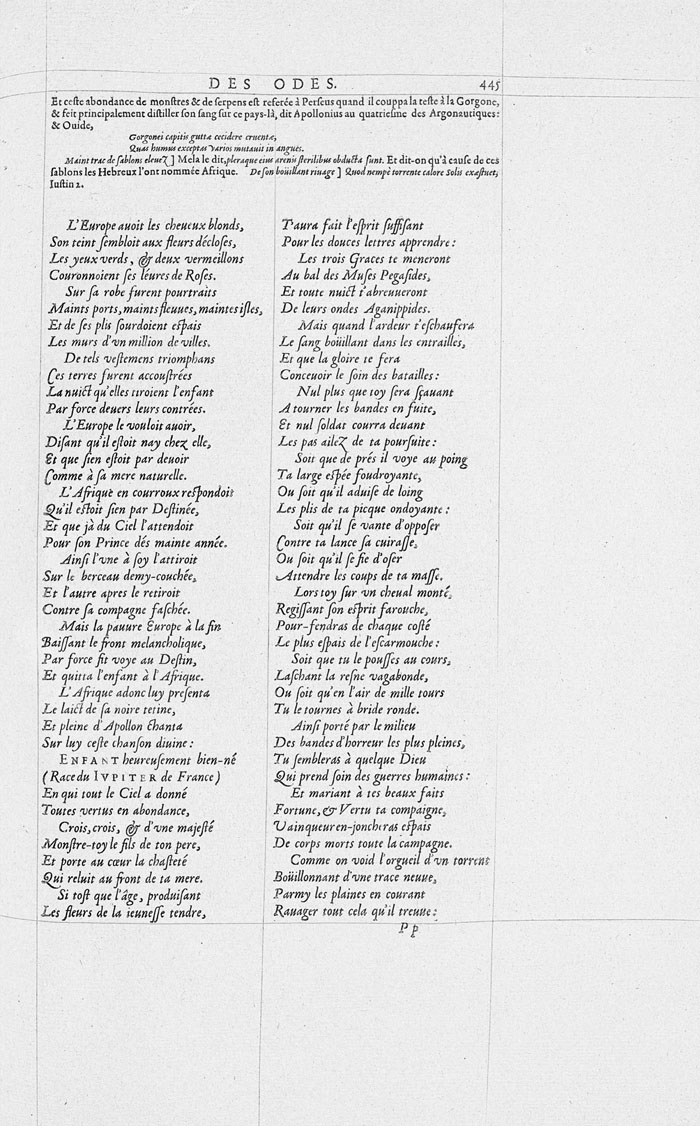 DES ODES. 445
Et ceste abondance de monstres & de serpens est referée à Perseus quand il couppa la teste à la Gorgone,
& feit principalement distiller son sang sur ce pays-là, dit Apollonius au quatriesme des Argonautiques:
& Ouide,
Gorgonei capitis guttæ cecidere cruentæ,
Quas humus exceptas varios mutauit in angues.
Maint trac de sablons eleuez ] Mela le dit, pleraque eius arenis sterilibus obducta sunt. Et dit-on qu'à cause de ces
sablons les Hebreux l'ont nommée Afrique. De son boüillant riuage ] Quod nempè torrente calore Solis exæstuet,
Iustin 2.
L'Europe auoit les cheueux blonds,
Son teint sembloit aux fleurs décloses,
Les yeux verds, & deux vermeillons
Couronnoient ses léures de Roses.
Sur sa robe furent pourtraits
Maints ports, maints fleuues, maintes isles,
Et de ses plis sourdoient espais
Les murs d'vn million de villes.
De tels vestemens triomphans
Ces terres furent accoustrées
La nuict qu'elles tiroient l'enfant
Par force deuers leurs contrées.
L'Europe le vouloit auoir,
Disant qu'il estoit nay chez elle,
Et que sien estoit par deuoir
Comme à sa mere naturelle.
L'Afrique en courroux respondoit
Qu'il estoit sien par Destinée,
Et que jà du Ciel l'attendoit
Pour son Prince dés mainte année.
Ainsi l'vne à soy l'attiroit
Sur le berceau demy-couchée,
Et l'autre apres le retiroit
Contre sa compagne faschée.
Mais la pauure Europe à la fin
Baissant le front melancholique,
Par force fit voye au Destin,
Et quitta l'enfant à l'Afrique.
L'Afrique adonc luy presenta
Le laict de sa noire tetine,
Et pleine d'Apollon chanta
Sur luy ceste chanson diuine:
ENFANT heureusement bien-né
(Race du IVPITER de France)
En qui tout le Ciel a donné
Toutes vertus en abondance,
Crois, crois, & d'vne majesté
Monstre-toy le fils de ton pere,
Et porte au cœur la chasteté
Qui reluit au front de ta mere.
Si tost que l'âge, produisant
Les fleurs de la ieunesse tendre,
T'aura fait l'esprit suffisant
Pour les douces lettres apprendre:
Les trois Graces te meneront
Au bal des Muses Pegasides,
Et toute nuict t'abreuueront
De leurs ondes Aganippides.
Mais quand l'ardeur t'eschaufera
Le sang boüillant dans les entrailles,
Et que la gloire te fera
Conceuoir le soin des batailles:
Nul plus que toy sera sçauant
A tourner les bandes en fuite,
Et nul soldat courra deuant
Les pas ailez de ta poursuite:
Soit que de prés il voye au poing
Ta large espée foudroyante,
Ou soit qu'il aduise de loing
Les plis de ta picque ondoyante:
Soit qu'il se vante d'opposer
Contre ta lance sa cuirasse,
Ou soit qu'il se fie d'oser
Attendre les coups de ta masse.
Lors toy sur vn cheual monté,
Regissant son esprit farouche,
Pour-fendras de chaque costé
Le plus espais de l'escarmouche:
Soit que tu le pousses au cours,
Laschant la resne vagabonde,
Ou soit qu'en l'air de mille tours
Tu le tournes à bride ronde.
Ainsi porté par le milieu
Des bandes d'horreur les plus pleines,
Tu sembleras à quelque Dieu
Qui prend soin des guerres humaines:
Et mariant à tes beaux faits
Fortune, & Vertu ta compaigne,
Vainqueur en-joncheras espais
De corps morts toute la campagne.
Comme on void l'orgueil d'vn torrent
Boüillonnant d'vne trace neuue,
Parmy les plaines en courant
Rauager tout cela qu'il treuue:
Pp